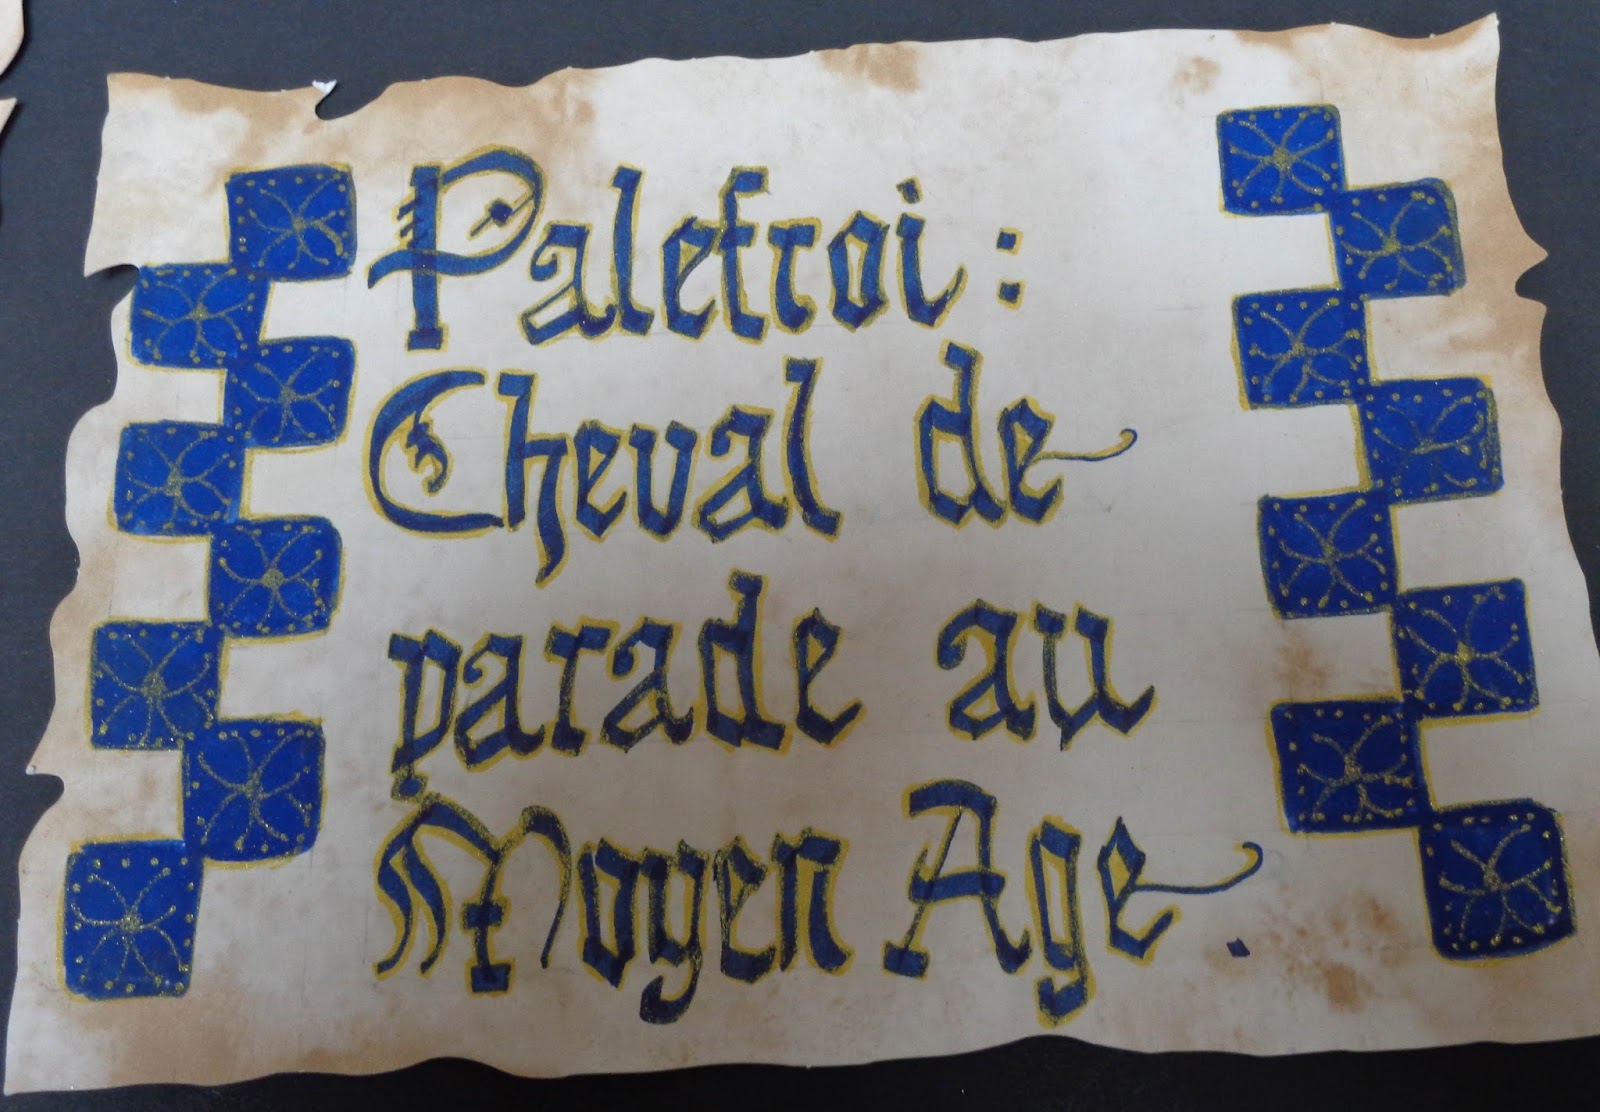 Palefroi :
Cheval de
parade au
Moyen Age.